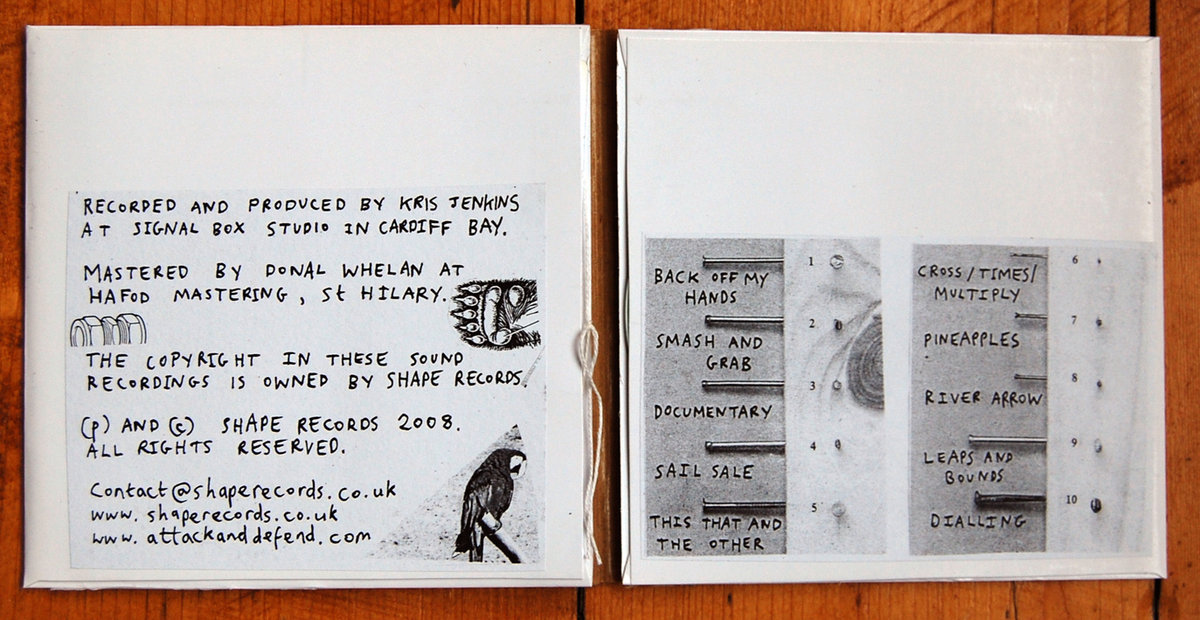 RECORDED AND PRODUCED BY KRIS JENKINS
AT SIGNAL BOX STUDIO IN CARDIFF BAY.
MASTERED BY DONAL WHELAN AT
HAFOD MASTERING, St HILARY.
THE COPYRIGHT IN THESE SOUND
RECORDINGS IS OWNED BY SHAPE RECORDS.
(p) AND (c) SHAPE RECORDS 2008.
ALL RIGHTS RESERVED.
Contact@shaperecords.co.uk
www.shaperecords.co.uk
www.attackanddefend.com
1
BACK OFF MY
HANDS
2
SMASH AND
GRAB
3
DOCUMENTARY
4
SAIL SALE
5
THIS THAT AND
THE OTHER
6
CROSS/TIMES/
MULTIPLY
7
PINEAPPLES
8
RIVER ARROW
9
LEAPS AND
BOUNDS
10
DIALLING